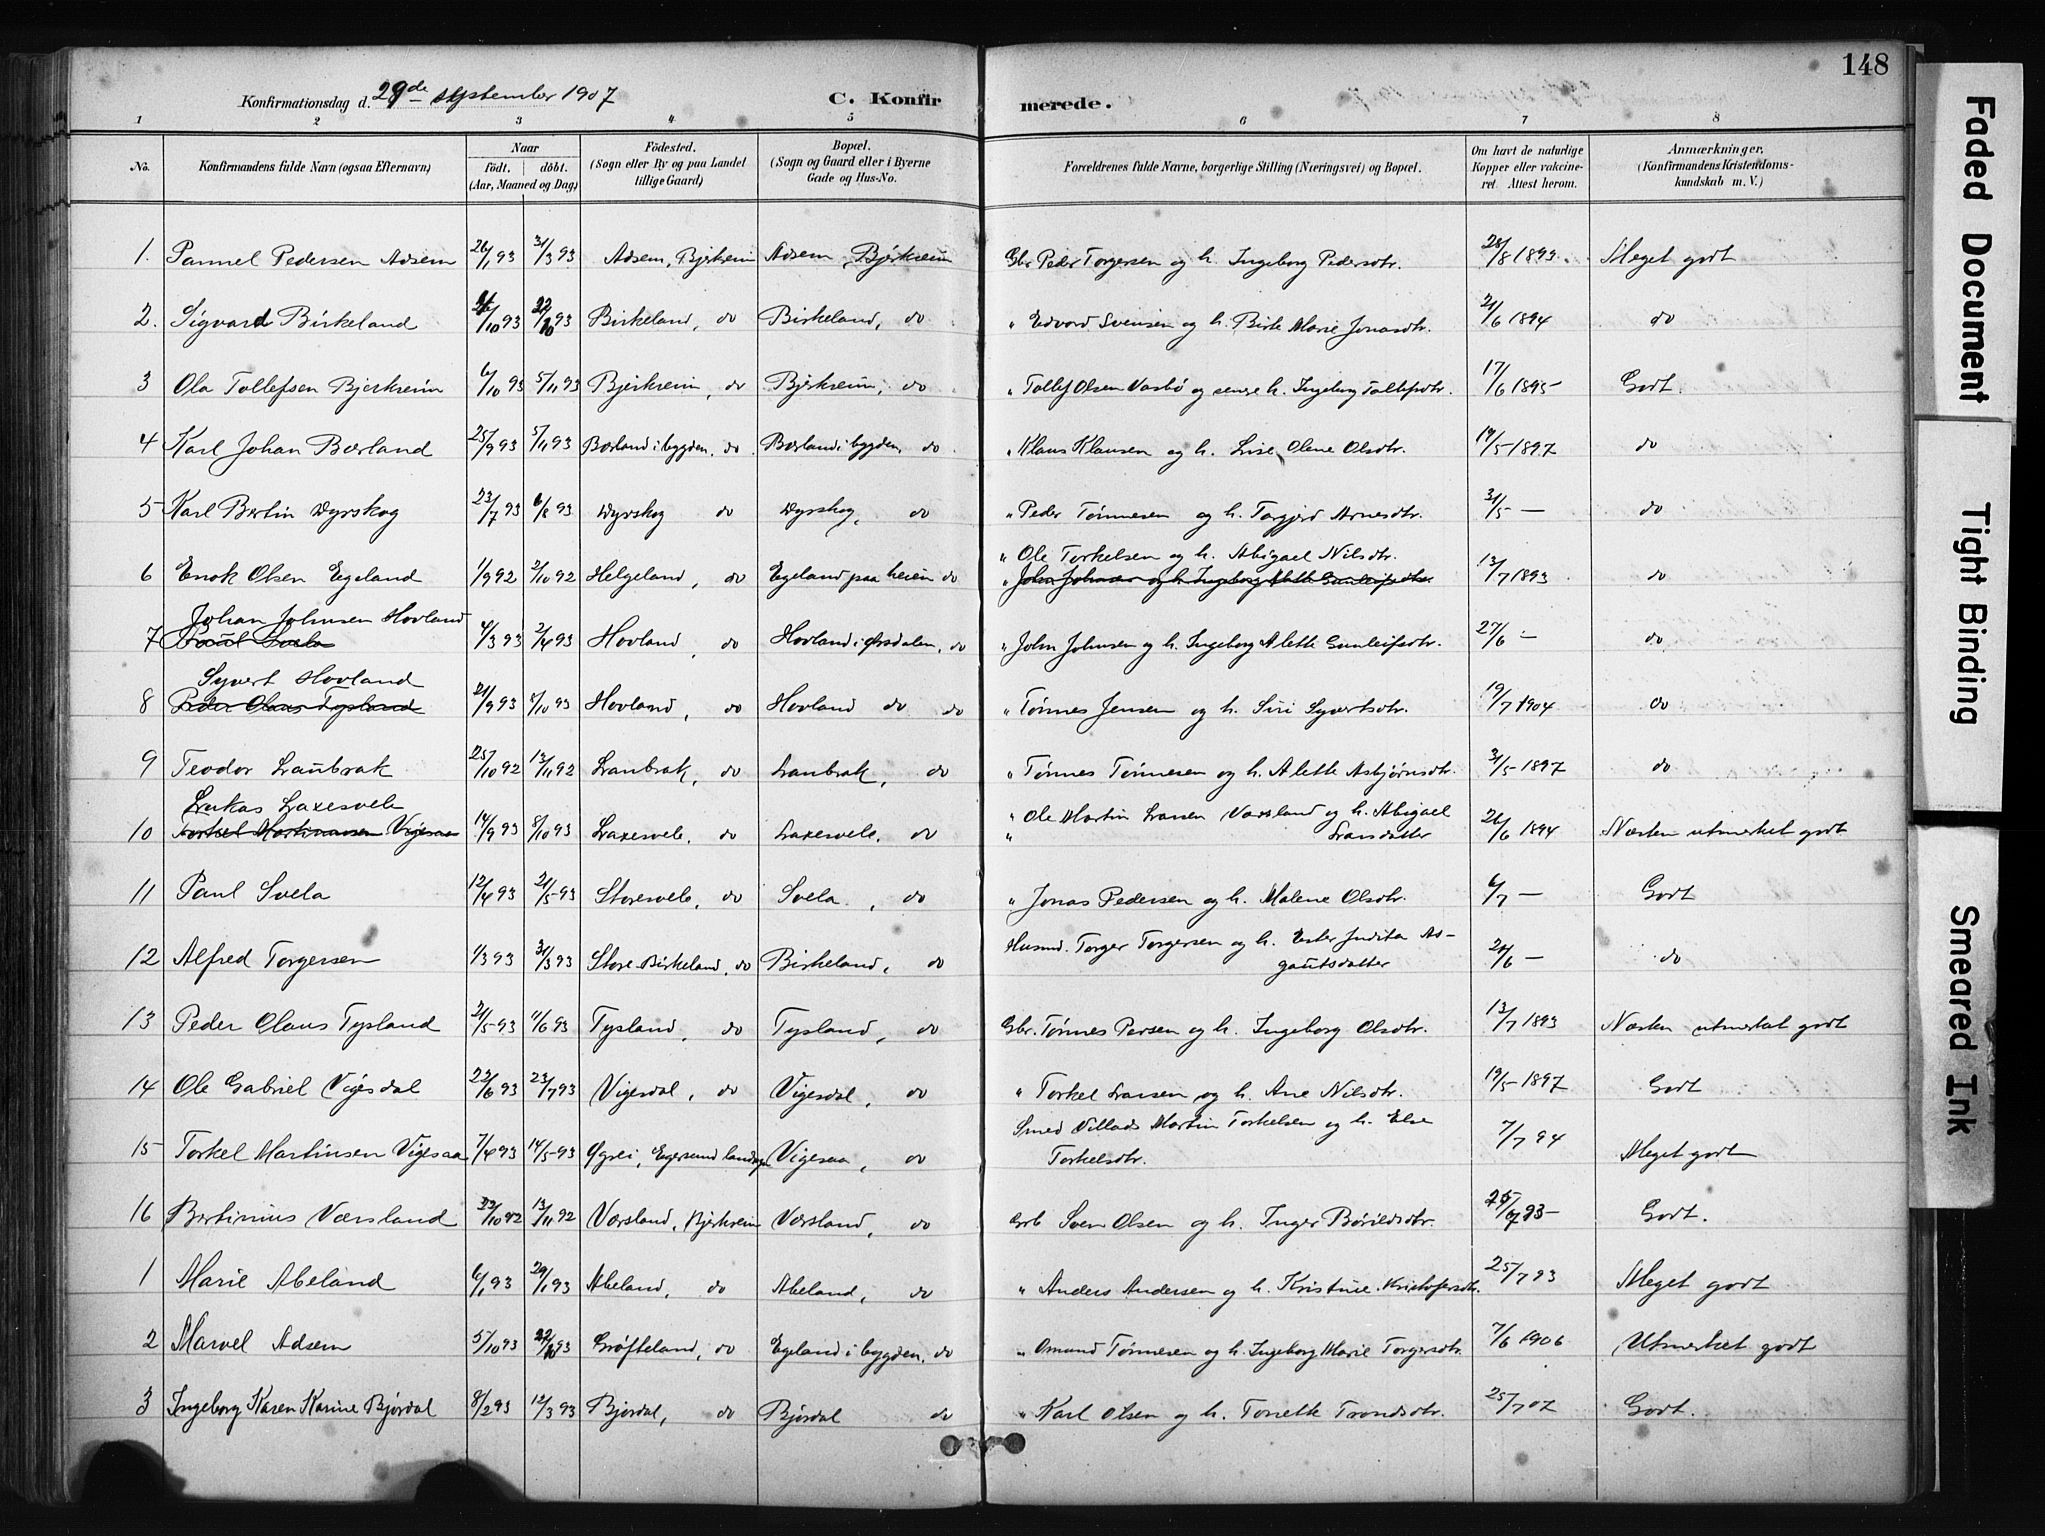 148
Konfirmationsdag d. 29de september 1907 C. Konfirmerede.
1 2 3 4 5 6 7 8
No. Konfirmandens fulde Navn (ogsaa Efternavn) Naar født. døbt. (Aar, Maaned og Dag) Fødested. (Sogn eller By og paa Landet tillige Gaard) Bopæl. (Sogn og Gaard eller i Byerne Gade og Hus-No. Forældrenes fulde Navne, borgerlige Stilling (Næringsvei) og Bopæl. Om havt de naturlige Kopper eller vakcineret. Attest herom. Anmærkninger. (Konfirmandens Kristendomskundskab m. V.)
1. Pannel Pedersen Adsem 26/1 93 31/3 93 Adsem, Bjerkreim Adsem, Bjerkreim Gbr. Peder Torgersen og h. Ingeborg Pedersdtr. 28/8 1893. Meget godt
2. Sigvard Birkeland /10 93 22/10 93 Birkeland, do Birkeland, do " Edvard Svensen og h. Birte Marie Jonasdtr. 21/6 1894 do
3 Ola Tollefsen Bjerkreim 6/10 93 5/11 93 Bjerkreim, do Bjerkreim, do " Tollef Olsen Vasbø og h. Ingeborg Tollefsdtr. 17/6 1895 Godt.
4 Karl Johan Bærland 25/9 93 5/11 93 Bærland i bygden, do. Bærland i bygden, do " Klaus Klausen og h. Lise Olene Olsdtr. 19/5 1897 do
5 Karl Bertin Dyrskog 23/7 93 6/8 93 Dyrskog do Dyrskog, do " Peder Tønnesen og h. Torgjerd Arnesdtr. 31/5 — do
6 Enok Olsen Egeland 1/9 92 2/10 92 Helgeland, do Egeland paa heien do " Ole Torkelsen og h. Abigael Nilsdtr. 13/7 1893 do
" John Johnsen og h. Ingeborg Alette Gunleifsdtr
Johan Johnsen Hovland
7 Paul Svela 4/3 93 2/4 93 Hovland, do Hovland i Ørsdalen, do " John Johnsen og h. Ingeborg Alette Gunleifsdtr. 27/6 — do
Syvert Hovland
8 Peder Olaus Tysland 21/9 93 /10 93 Hovland, do Hovland do do " Tønnes Jensen og h. Siri Syvertsdtr. 19/7 1904 do
9 Teodor Laubrak 25/10 92 13/11 92 Laubrak, do Laubrak, do " Tønnes Tønnesen og h. Alette Asbjørnsdtr. 31/5 1897 do
Lukas Laxesvele
10 Torkel Martinsen Vigesaa 14/9 93 8/10 93 Laxesvele, do Laxesvele, do " Ole Martin Larsen Værsland og h. Abigael 26/6 1894 Næsten utmerket godt
" Larsdatter
11 Paul Svela 12/4 93 21/5 93 Storesvele, do Svela, do " Jonas Pedersen og h. Malene Olsdtr. 6/7 — Godt
12 Alfred Torgersen 1/3 93 31/3 93 Store Birkeland, do Birkeland, do Husmd. Torger Torgersen og h. Ester Judita As- 21/6 — do
gautsdatter
13 Peder Olaus Tysland 2/5 93 11/6 93 Tysland, do Tysland, do Gbr. Tønnes Persen og h. Ingeborg Olsdtr. 13/7 1893 Næsten utmerket godt
14 Ole Gabriel Vigesdal 22/6 93 23/7 93 Vigesdal, do Vigesdal, do " Torkel Larsen og h. Ane Nilsdtr. 19/5 1897 Godt
15 Torkel Martinsen Vigesaa 7/4 93 14/5 93 Ogrei, Egersund landsogn Vigesaa, do Smed Villads Martin Torkelsen og h. Else 7/7 94 Meget godt
Torkelsdtr.
16 Bertinius Værsland 22/10 92 13/11 92 Værsland, Bjerkreim Værsland, do Grb Sven Olsen og h. Inger Børildsdtr. 93 — Godt.
1 Marie Abeland 6/1 93 29/1 93 Abeland, do Abeland, do " Anders Andersen og h. Kristine Kristofersdtr. 25/7 93 Meget godt
2 Marvel Adsem 5/10 93 22/10 93 Grøfteland, do Egeland i bygden, do " Omund Tønnesen og h. Ingeborg Marie Torgersdtr. 7/6 1906 Utmerket godt
3 Ingeborg Karen Karine Bjørdal 8/2 93 12/3 93 Bjørdal, do Bjørdal do " Karl Olsen og h. Tonette Trondsdtr. 25/7 07 Godt.
Faded Document
Tight Binding
Smeared Ink